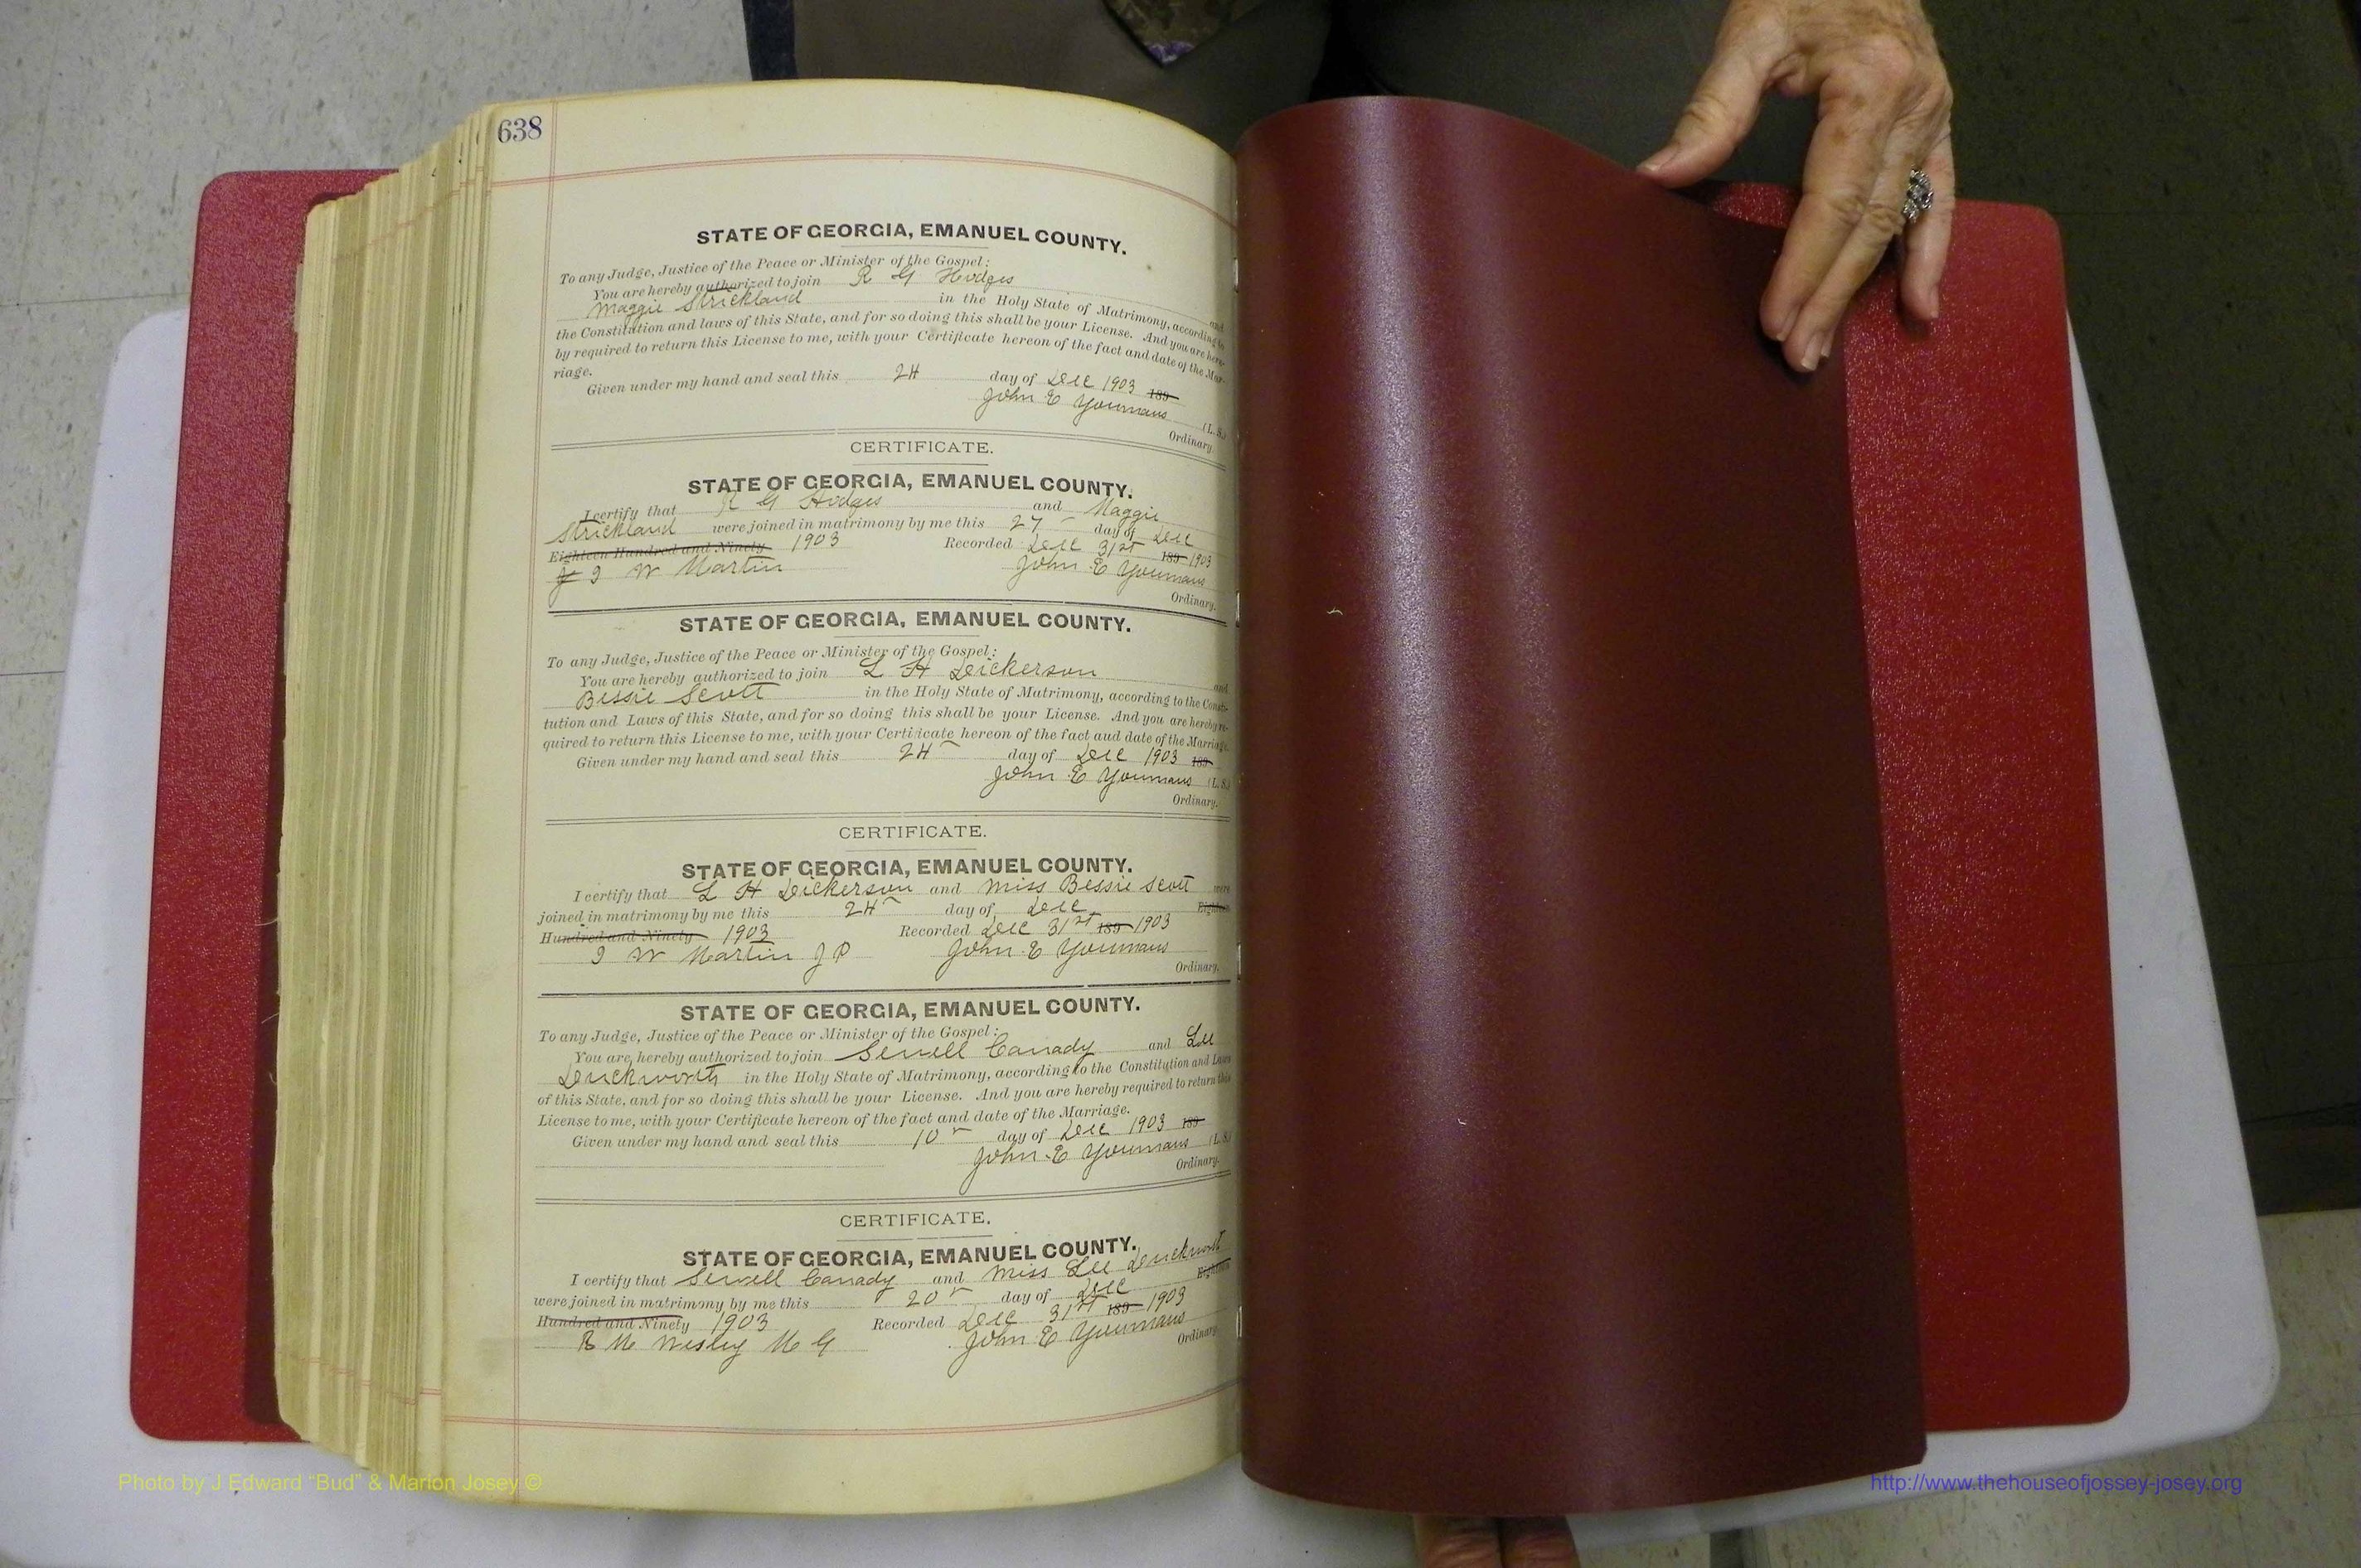 638
STATE OF GEORGIA, EMANUEL COUNTY.
To any Judge, Justice of the Peace or Minister of the Gospel:
You are hereby authorized to join R G Hodges and
Maggie Strickland in the Holy State of Matrimony, according to
the Constitution and laws of this State, and for so doing this shall be your License. And you are here-
by required to return this License to me, with your Certificate hereon of the fact and date of the Mar-
riage.
Given under my hand and seal this 24 day of Dec 1903 189
John E Youmans (L. S.)
Ordinary.
CERTIFICATE.
STATE OF GEORGIA, EMANUEL COUNTY.
I certify that R G Hodges and Maggie
Strickland were joined in matrimony by me this 27 day of Dec
Eighteen Hundred and Ninety 1903 Recorded Dec 31st 189 1903
J W Martin John E Youmans
Ordinary.
STATE OF GEORGIA, EMANUEL COUNTY.
To any Judge, Justice of the Peace or Minister of the Gospel:
You are hereby authorized to join L H Dickerson and
Bessie Scott in the Holy State of Matrimony, according to the Consti-
tution and Laws of this State, and for so doing this shall be your License. And you are hereby re-
quired to return this License to me, with your Certificate hereon of the fact aud date of the Marriage.
Given under my hand and seal this 24 day of Dec 1903 189
John E Youmans (L. S.)
Ordinary.
CERTIFICATE.
STATE OF GEORGIA, EMANUEL COUNTY.
I certify that L H Dickerson and Miss Bessie Scott were
joined in matrimony by me this 24 day of Dec Eighteen
Hundred and Ninety 1903 Recorded Dec 31st 189 1903
J W Martin J P John E Youmans
Ordinary.
STATE OF GEORGIA, EMANUEL COUNTY.
To any Judge, Justice of the Peace or Minister of the Gospel:
You are hereby authorized to join Sewell Canady and Lee
Duckworth in the Holy State of Matrimony, according to the Constitution and Laws
of this State, and for so doing this shall be your License. And you are hereby required to return this
License to me, with your Certificate hereon of the fact and date of the Marriage.
Given under my hand and seal this 10 day of Dec 1903 189
John E Youmans (L. S.)
Ordinary.
CERTIFICATE.
STATE OF GEORGIA, EMANUEL COUNTY.
I certify that Sewell Canady and Miss Lee Duckworth
were joined in matrimony by me this 20 day of Dec Eighteen
Hundred and Ninety 1903 Recorded Dec 31st 189 1903
R M Wesley M G John E Youmans
Ordinary.
Photo by J Edward "Bud" & Marion Josey ©
http://www.thehouseofjossey-josey.org